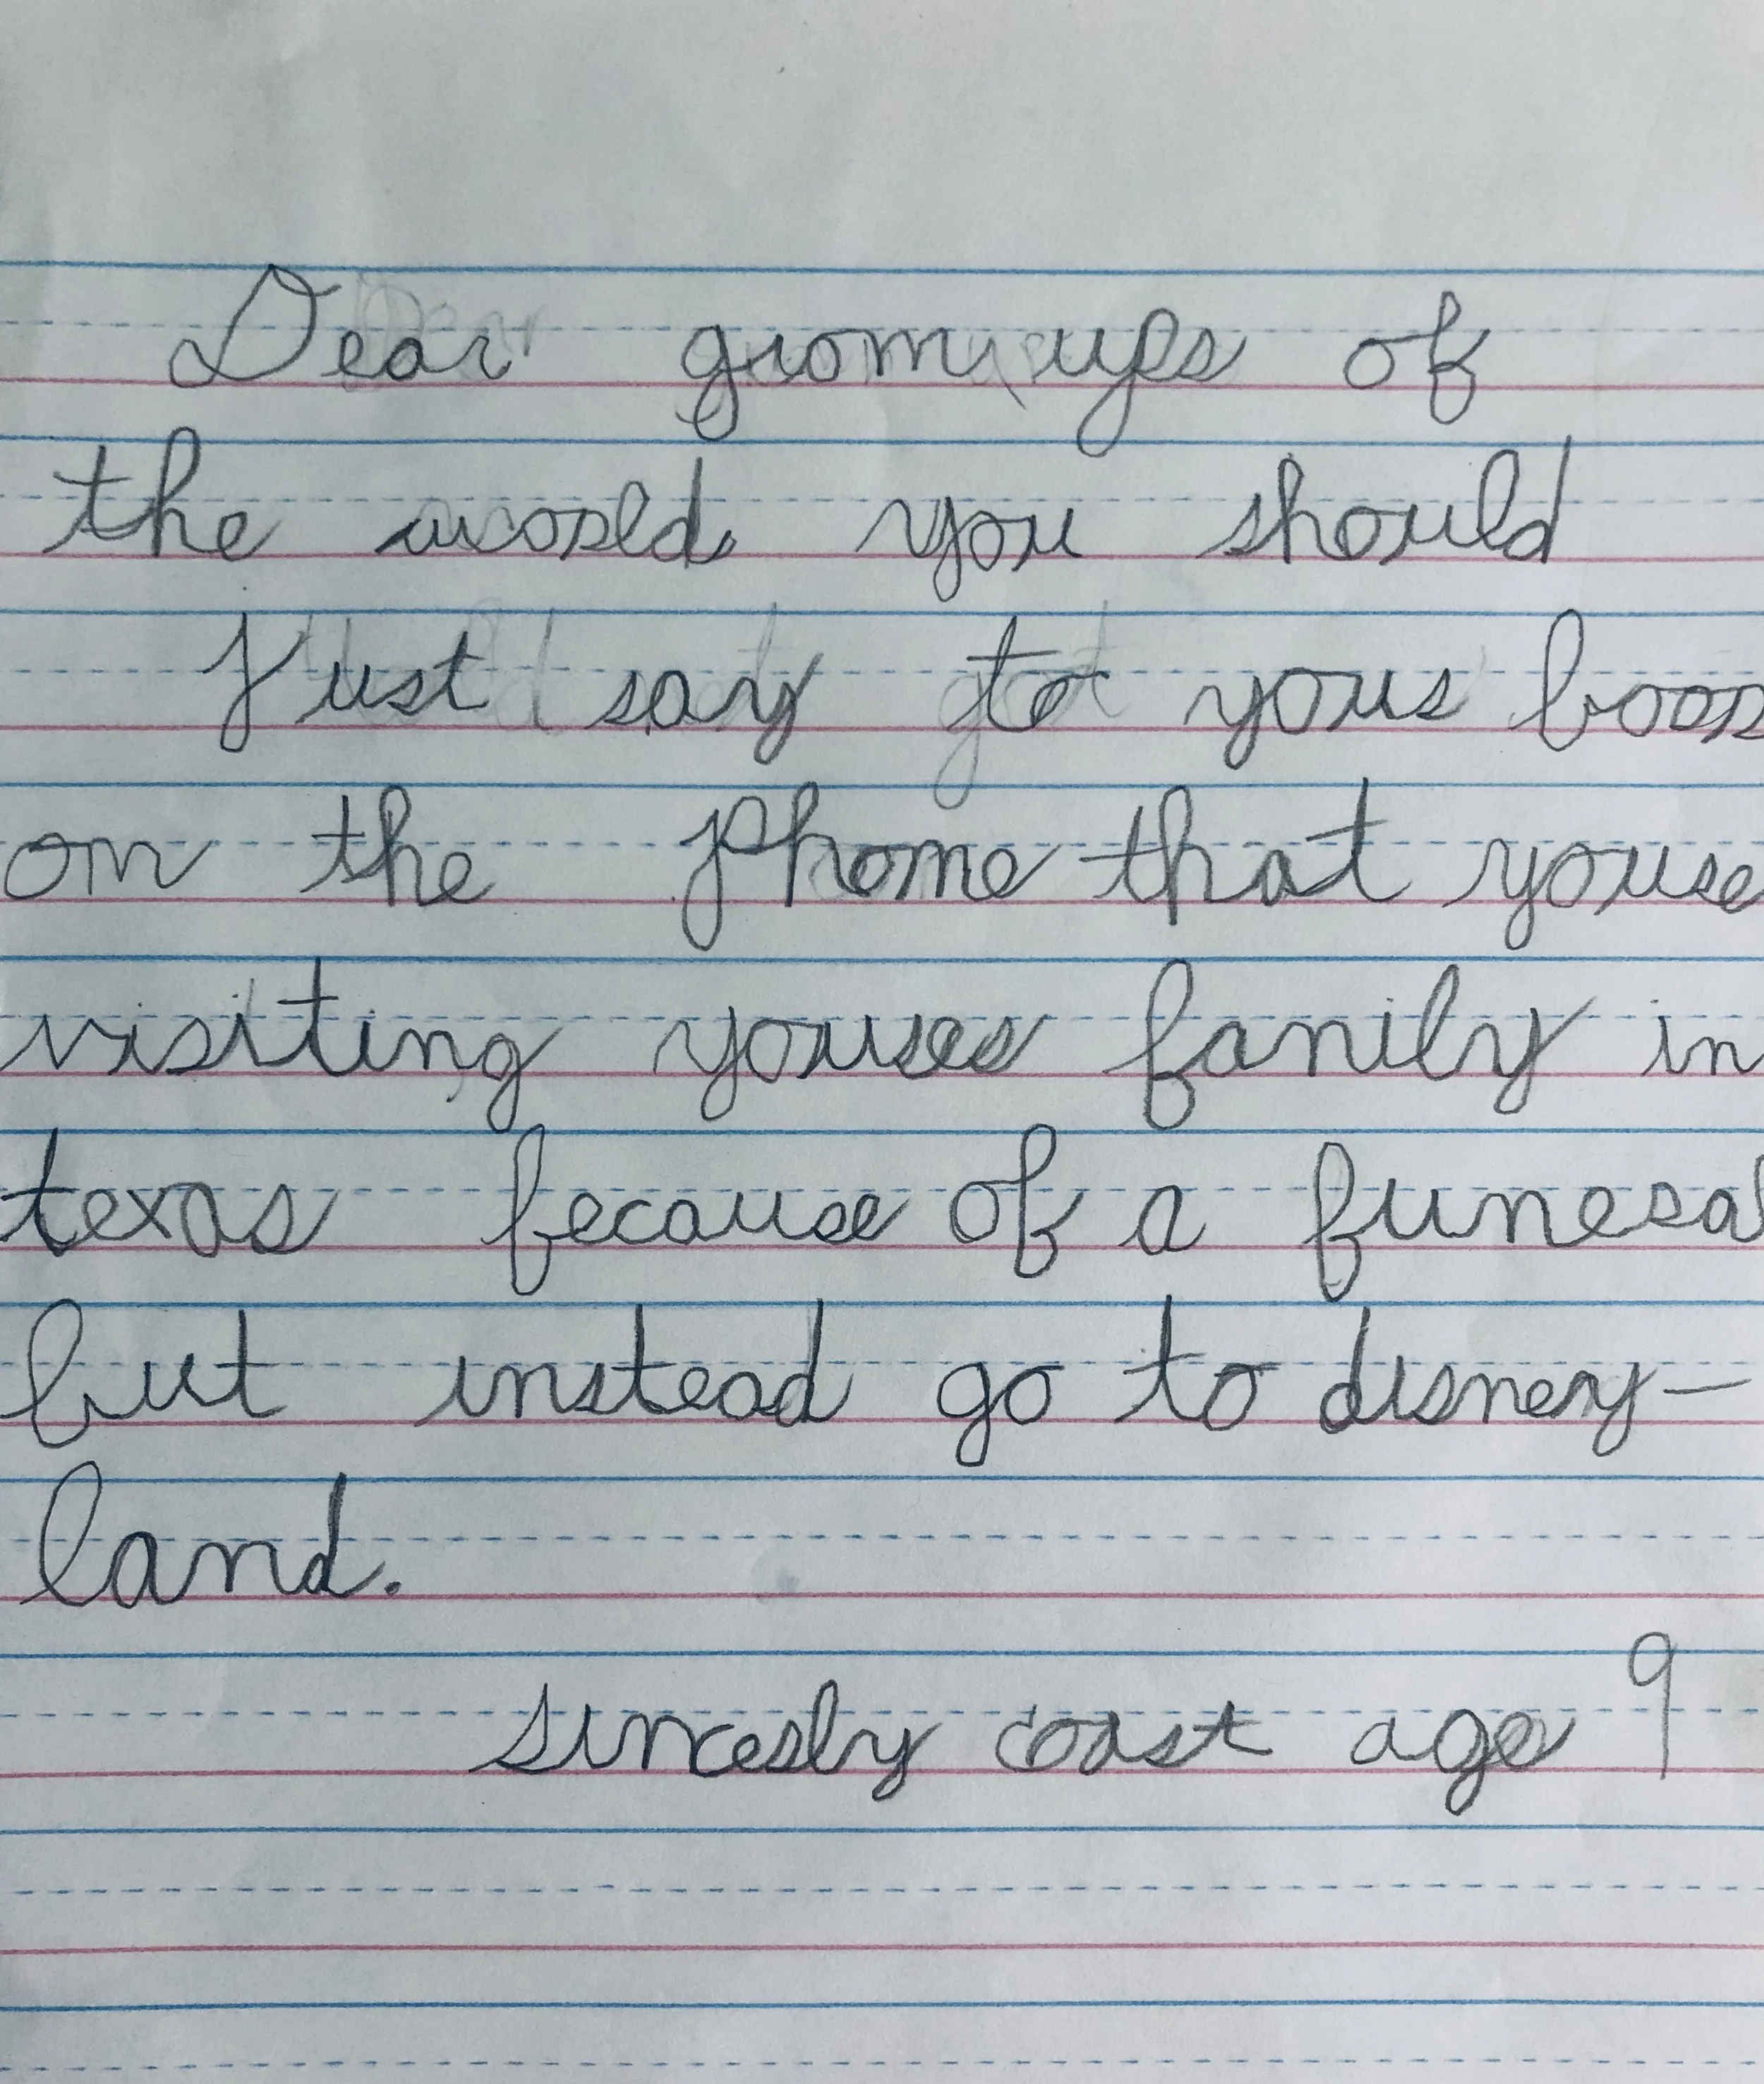 Dear gromups of
the world you should
Just say to your boos
on the phone that youre
visiting youres fanily in
texas because of a funeral
but instead go to disney—
land.
sincerly coast age 9